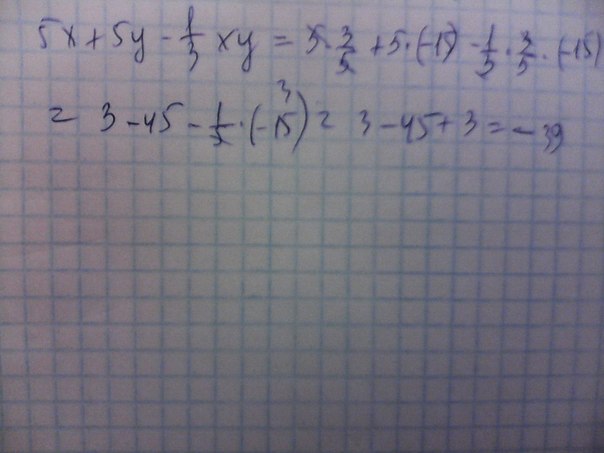 5x + 5y - 1/3 xy = 5 · 3/5 + 5 · (-15) - 1/3 · 3/5 · (-15)
= 3 - 45 - 1/5 · (-15) 3 = 3 - 45 + 3 = -39